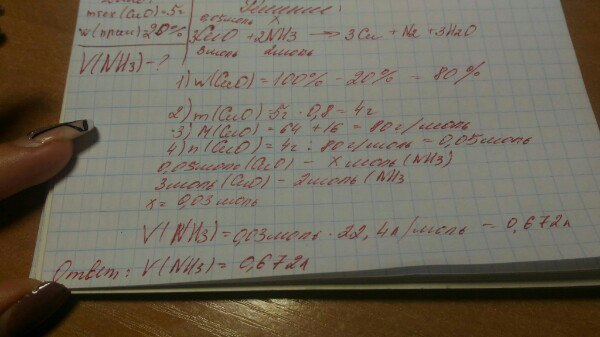 Решение:
mтех(CuO)=5г
w(прим)=20%
V(NH3)-?
0,05моль x
3CuO + 2NH3 → 3Cu + N2 + 3H2O
3моль 2моль
1) w(CuO) = 100% - 20% = 80%
2) m(CuO)=5г · 0,8 = 4г
3) M(CuO) = 64 + 16 = 80г/моль
4) n(CuO) = 4г : 80г/моль = 0,05моль
0,05моль(CuO) - x моль(NH3)
3моль(CuO) - 2моль(NH3
x = 0,03моль
V(NH3) = 0,03моль · 22,4л/моль = 0,672л
Ответ: V(NH3) = 0,672л